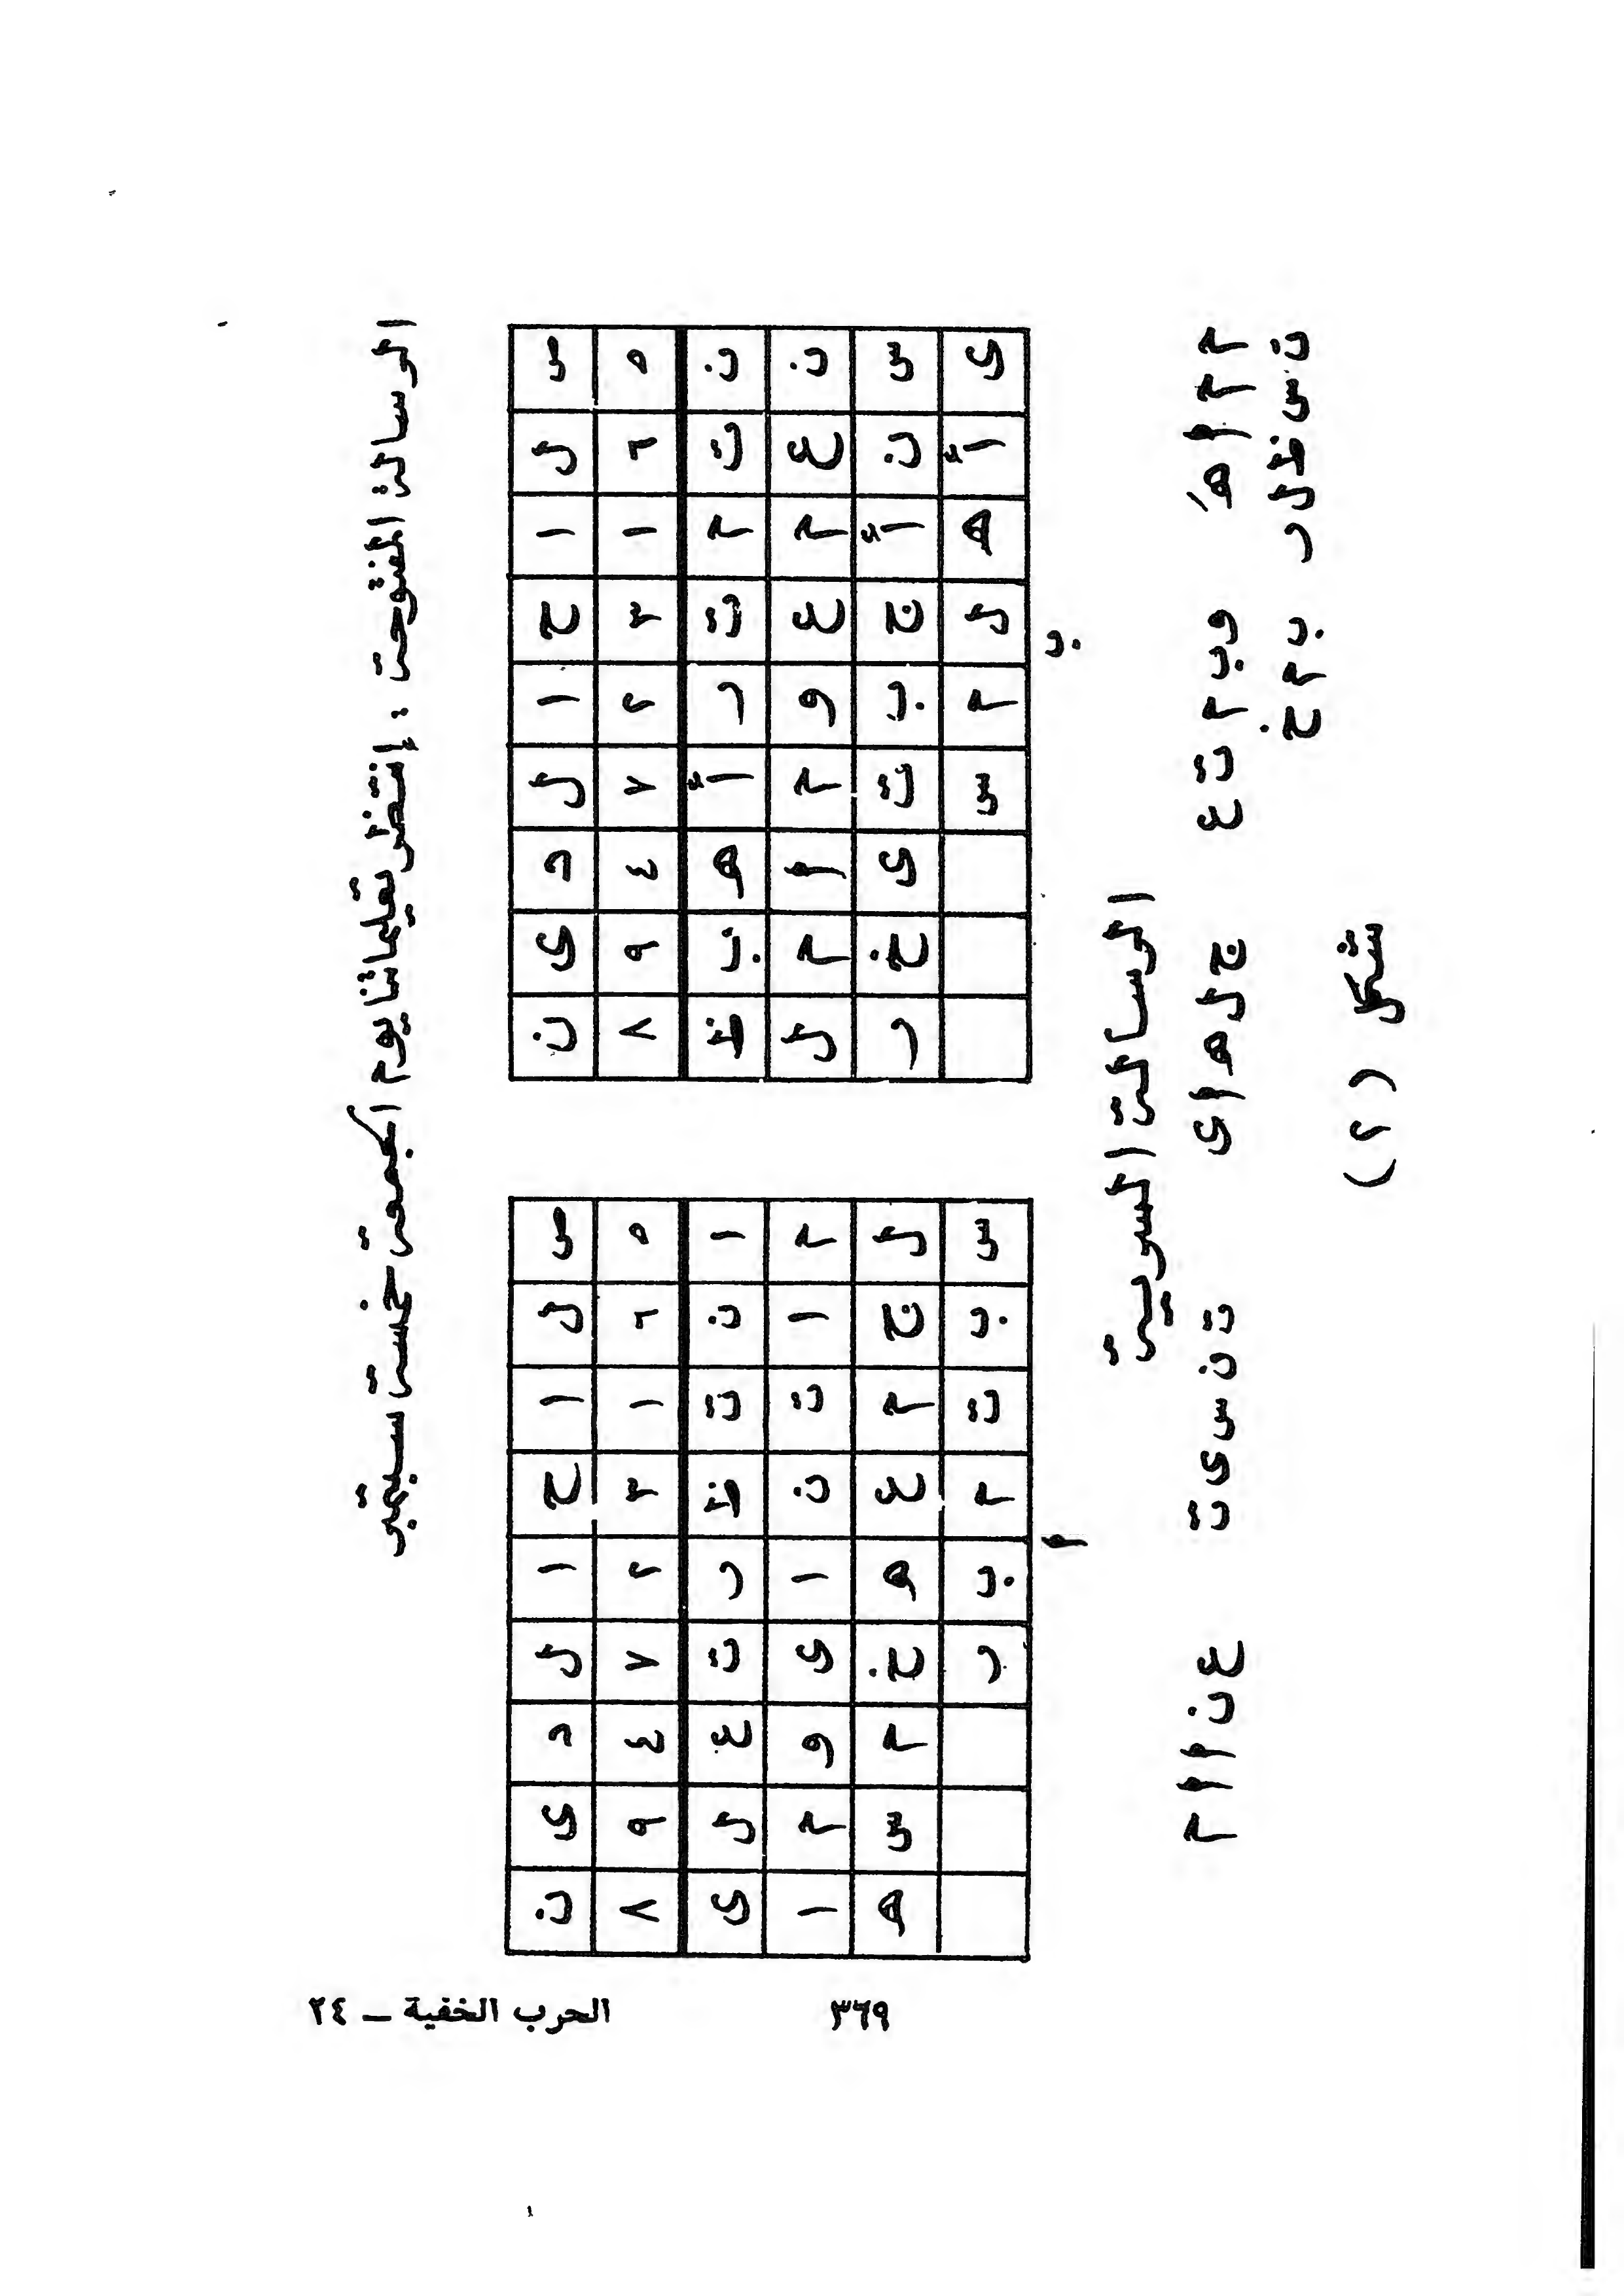 الرسالة المفتوحة : إنتظر تعليماتنا يوم الجمعة خمسة سبتمبر
ص ل ا ح ا ل د ى ن
٥ ٦ ١ ٣ ٢ ٧ ٤ ٩ ٨
ن ت م ت ر أ ه ب ظ
ن ع م ع و م أ م ل
س ن أ ج ب ت ى خ ر
ى أ ه ل م س
ب
ص ل ا ح ا ل د ى ن
٥ ٦ ١ ٣ ٢ ٧ ٤ ٩ ٨
ا ن ت ظ ر ت ع ل ى
م ا ت ن ا ى و م ا
ل ج م ع ه خ م س ه
س ب ت م ب ر
أ
الرسالة السرية
م م أ ه و ب م ت ع ج ل ه أ ى ت ن س ى ت ع ن أ أ م
ت س ظ ل ر ب م خ
شكل (٢)
٣٦٩
الحرب الخفية ــ ٢٤